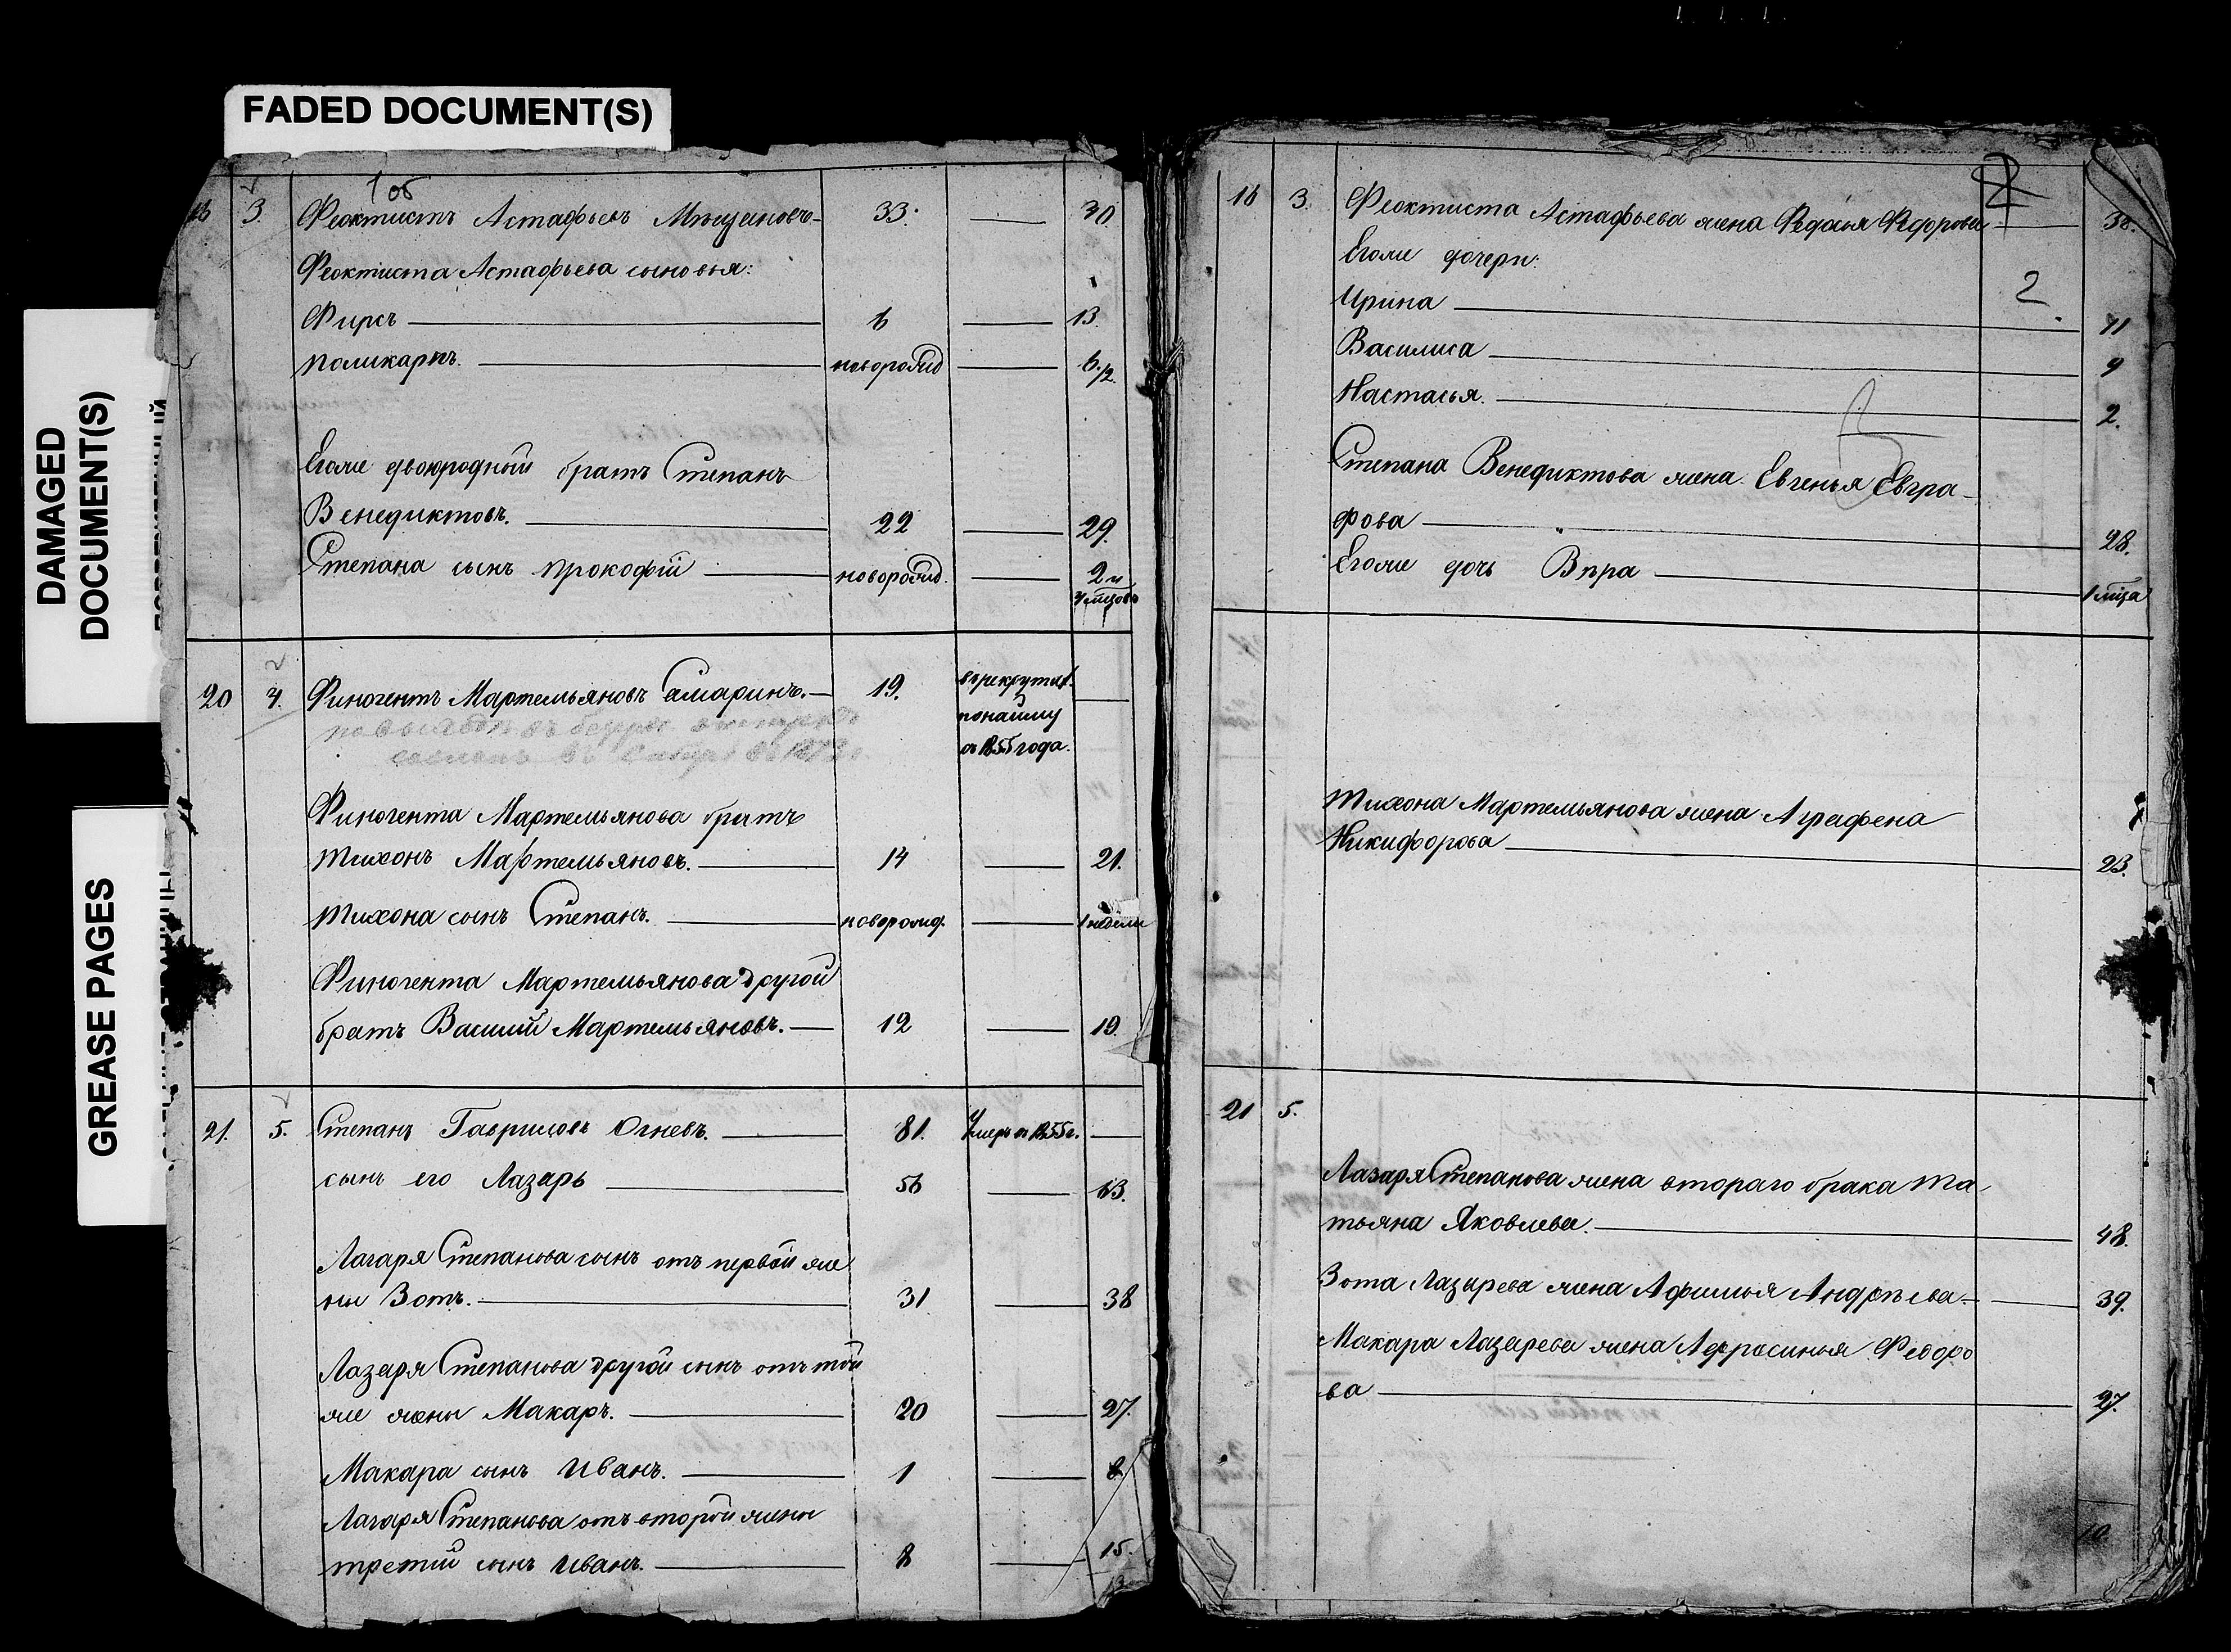 FADED DOCUMENT(S)
DAMAGED
DOCUMENT(S)
GREASE PAGES
1 об
3 Феоктистъ Астафьевъ Мѣщановъ 33.
Феоктиста Астафьева сыновья:
Фирсъ 6 13.
Поликарпъ. новорожд 6 1/2.
Егоже двоюродный братъ Степанъ
Венедиктовъ. 22 29.
Степана сынъ Прокофій новорожд. 2 и
мѣсцовъ
20 4. Финогентъ Мартемьяновъ Самаринъ. 19. въ рекрутах.
понайму
съ 1855 года.
Финогента Мартемьянова братъ
Тихонъ Мартемьяновъ. 14 21.
Тихона сынъ Степанъ. новорожд. 1 недели
Финогента Мартемьянова другой
братъ Василий Мартемьяновъ. 12 19.
21. 5. Степанъ Гавриловъ Огневъ. 81. Умеръ въ 1855 г.
сынъ его Лазарь 56 63.
Лазаря Степанова сынъ отъ первой же
ны Зотъ. 31 38
Лазаря Степанова другой сынъ отъ той
же жены Макаръ. 20 27.
Макара сынъ Иванъ. 1 8.
Лазаря Степанова отъ второй жены
третий сынъ Иванъ. 8 15.
2
16 3. Феоктиста Астафьева жена Федосья Федорова
Егоже дочери:
Ирина 11
2
Василиса 9
Настасья. 2.
Степана Венедиктова жена Евгенья Евгра-
фова 28.
Егоже дочь Вѣра 1 мѣсца
Тихона Мартемьянова жена Аграфена
Никифорова 23.
21 5.
Лазаря Степанова жена втораго брака Та-
тьяна Яковлева. 48.
Зота Лазарева жена Афимья Андрѣева. 39.
Макара Лазарева жена Афросинья Федоро
ва 27.